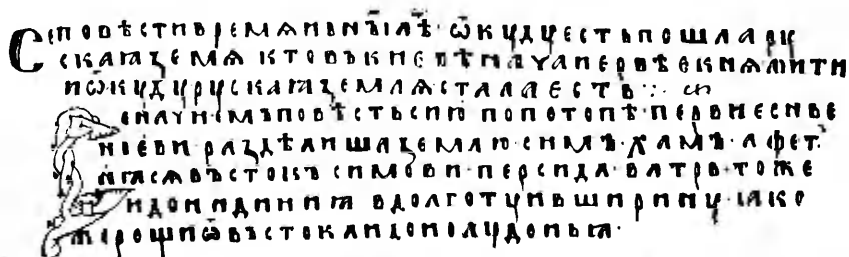 Се повѣсти времѧньнъıⷯ лѣⷮ ѿкуду есть пошла ру
скаꙗ земѧ кто въ киевѣ нача первѣе кнѧжити
и ѿкуду рускаꙗ землѧ стала есть:·
се начнемъ повѣсть сию· по потопѣ· первие снве
ноеви· раздѣлиша землю· симъ· хамъ· афетъ·
ꙗсѧ въстокъ симови· персида· ватръ· тоже
и до индикиꙗ в долготу и в ширину· ꙗко
же рощи ѿ въстока и до полуденьꙗ·